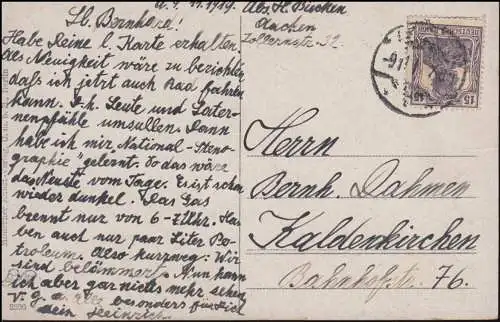 d. 9. 11. 1919. Abs. H. Bücken
Aachen
Zollernstr. 32
Lb. Bernhard!
Habe Deine l. Karte erhalten.
Als Neuigkeit wäre zu berichten,
daß ich jetzt auch Rad fahren
kann. D.h. Leute und Later-
nenpfähle umsullen. Dann
habe ich mir National-Steno-
graphie "gelernt. So das wäre
das Neuste vom Tage. Es ist schon
wieder dunkel. Das Gas
brennt nur von 6-7 Uhr. Ha-
ben auch nur paar Liter Pe-
troleum. Also kurzweg: Wir
sind belämmert. Nun kann
ich aber gar nichts mehr sehen
V. g. a. besonders für Dich
dein Heinrich
Herrn
Bernh. Dahmen
Kaldenkirchen
Bahnhofstr. 76.
15